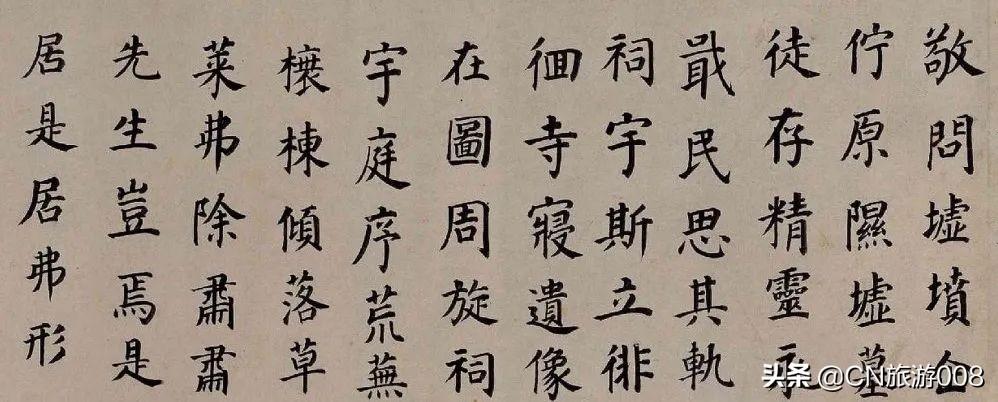 敬問墟墳企
佇原隰墟墓
徒存精靈永
戢民思其軌
祠宇斯立徘
徊寺寢遺像
在圖周旋祠
宇庭序荒蕪
榱棟傾落草
萊弗除肅肅
先生豈焉是
居是居弗形
头条 @CN旅游008